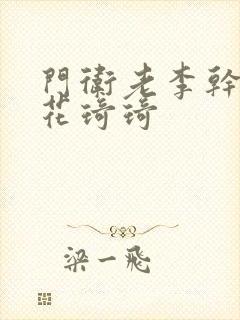 門衛老李幹
花琦琦
梁一飛